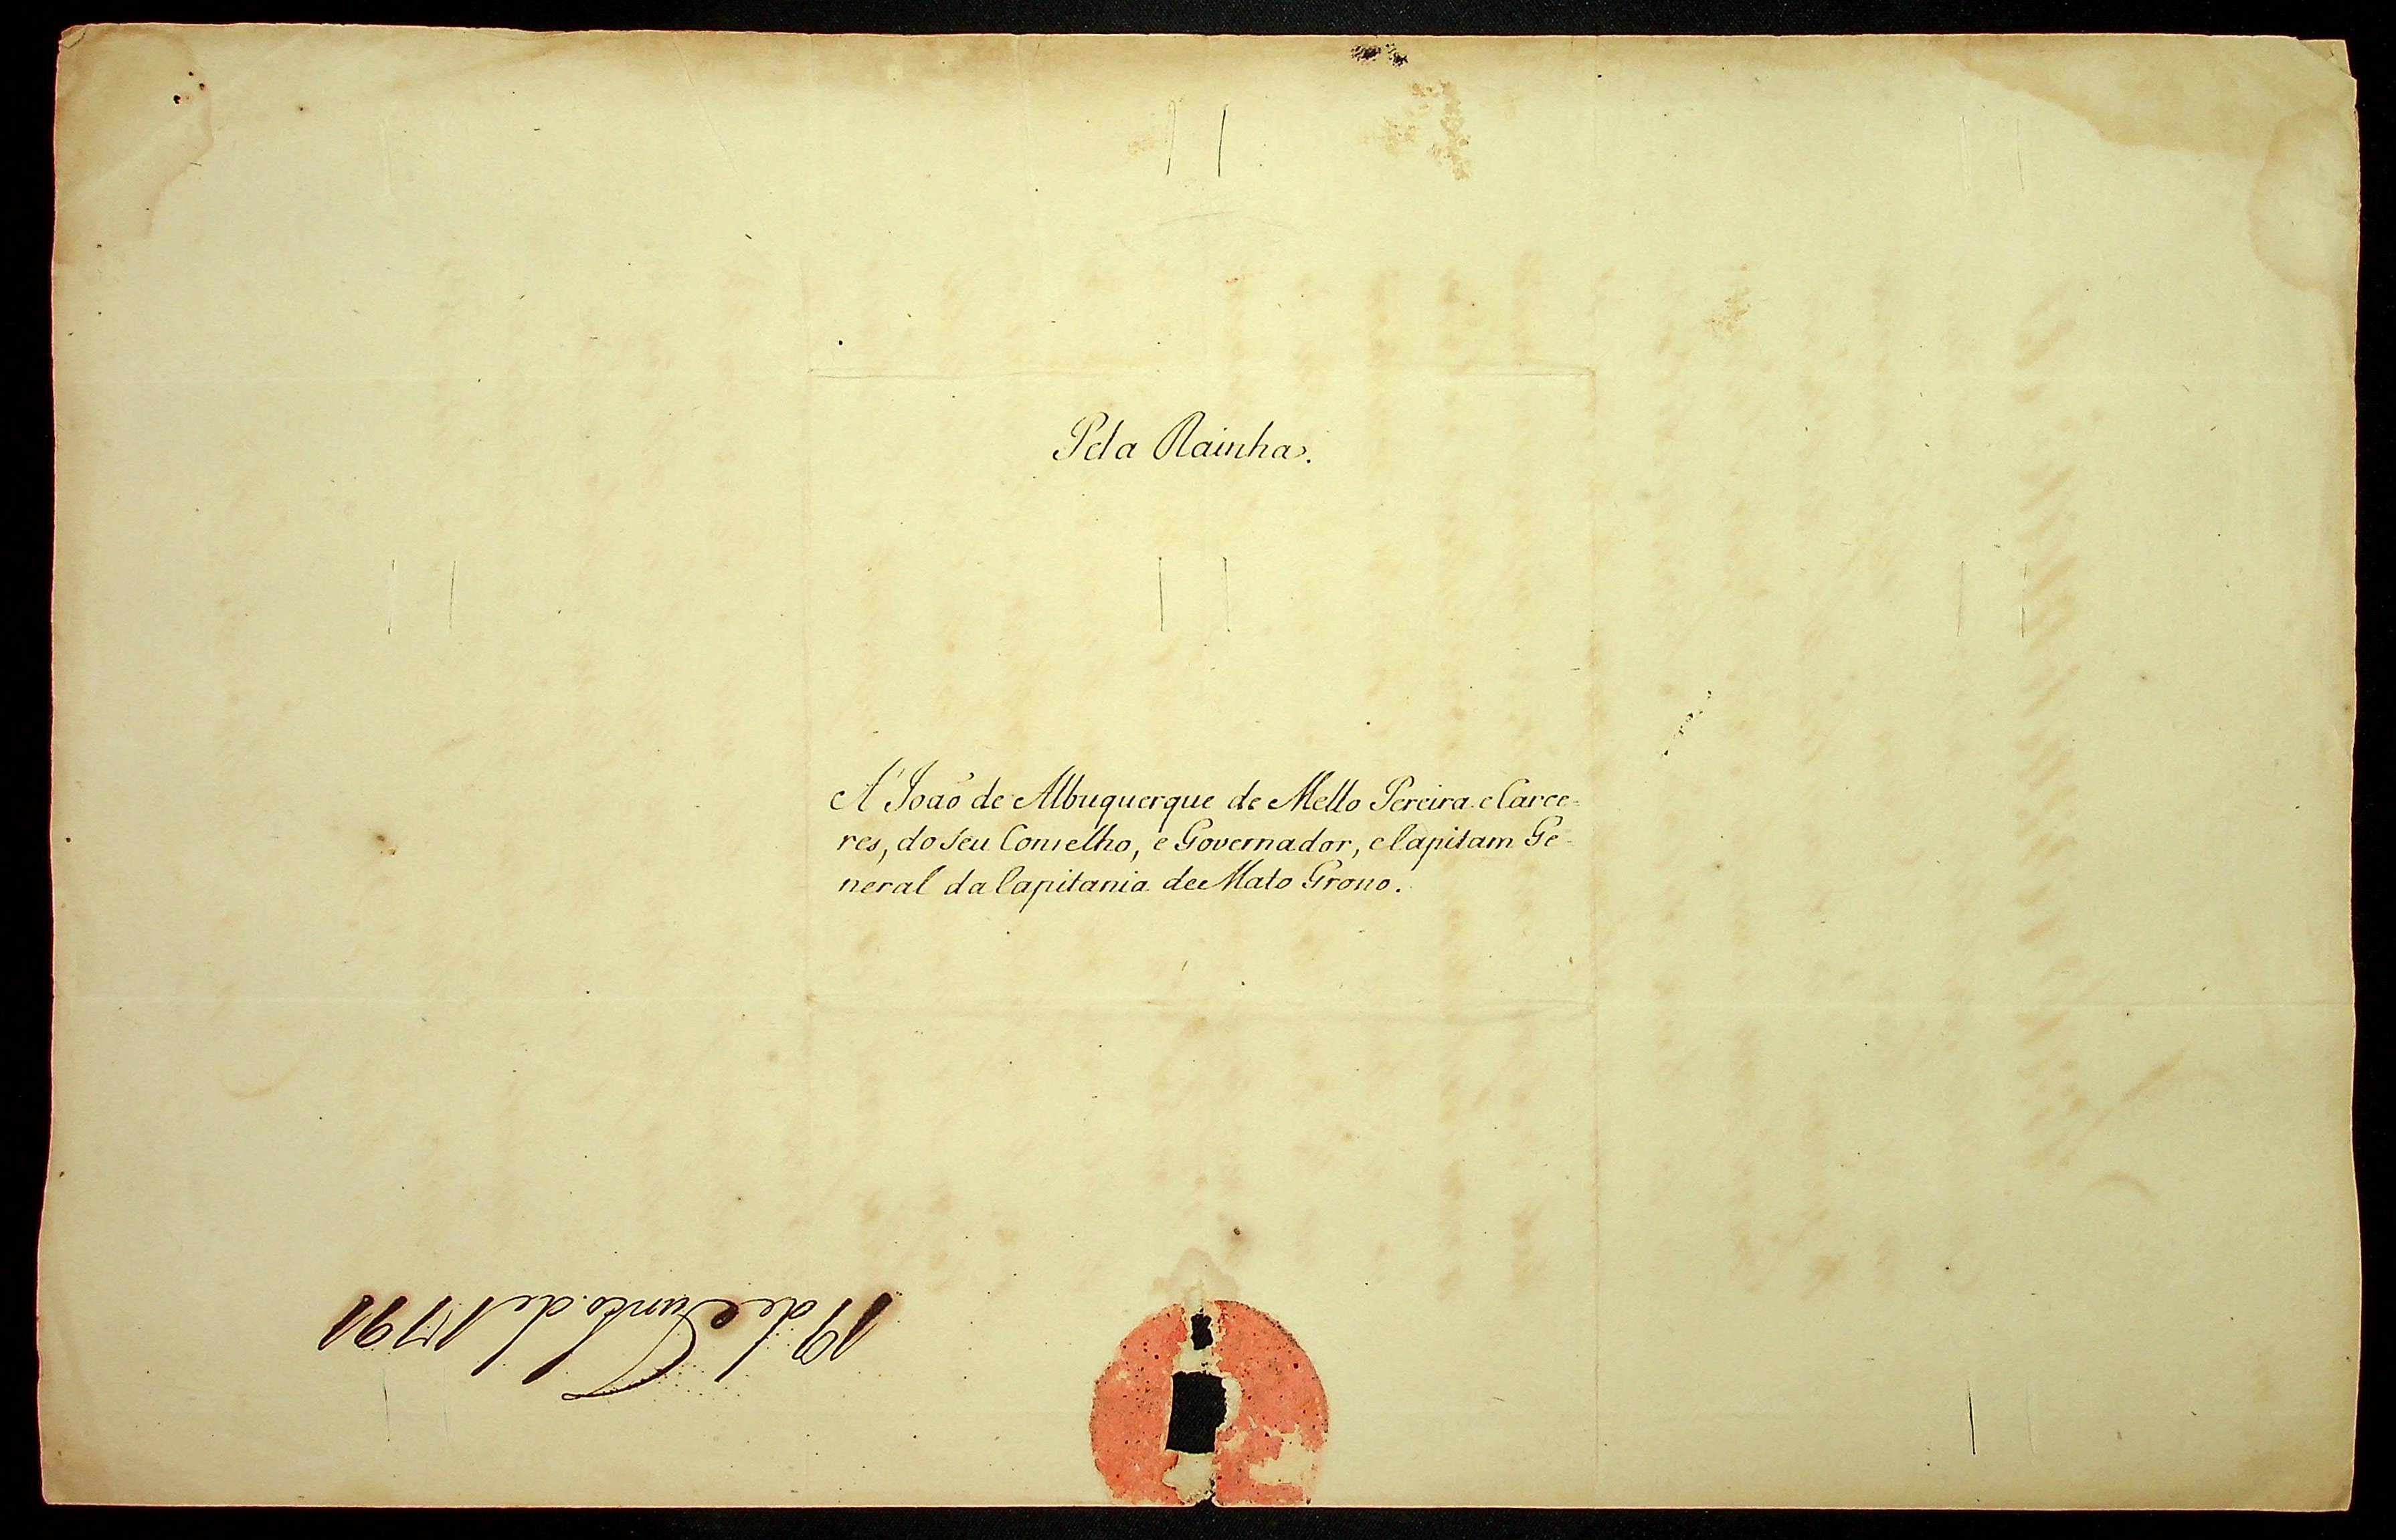 Pela Rainha.
A' João de Albuquerque de Mello Pereira e Carce-
res, do Seu Conselho, e Governador, e Capitam Ge-
neral da Capitania de Mato Grosso.
19 de Junho de 1791